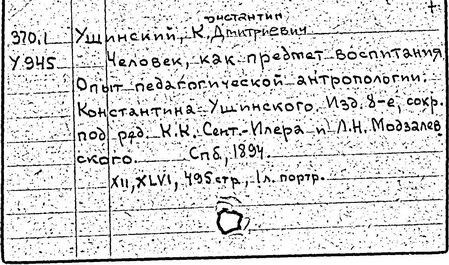 онстантин
370.1 Ушинский, К. Дмитриевич
У 945 Человек, как предмет воспитания
Опыт педагогической антропологии.
Константина Ушинского. Изд. 8-е, сокр.
под ред. К.К. Сент.-Илера и Л.Н. Модзалев
ского. Спб, 1894.
XII, XLVI, 495 стр., 1 л. портр.